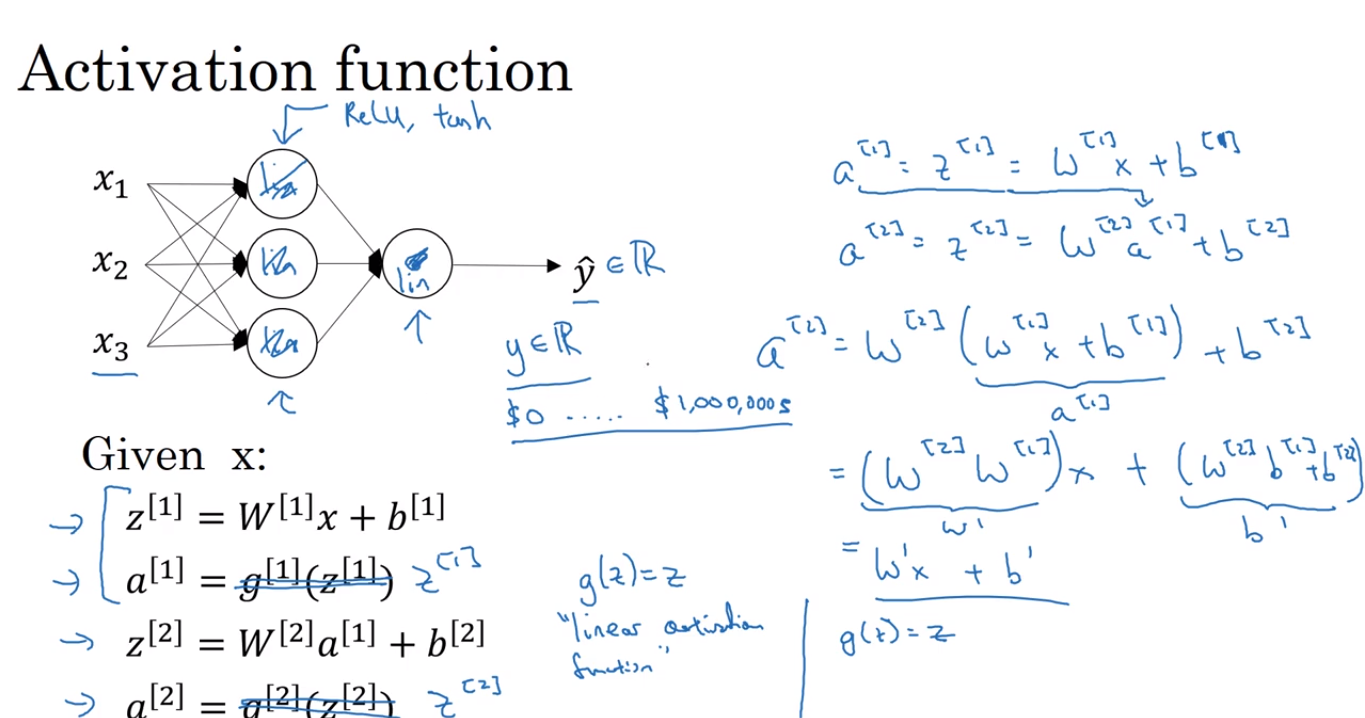 Activation function
ReLU, tanh
x₁
x₂
x₃
lin
ŷ ∈ ℝ
y ∈ ℝ
$0 ..... $1,000,000s
Given x:
z^[1] = W^[1]x + b^[1]
a^[1] = g^[1](z^[1]) z^[1]
z^[2] = W^[2]a^[1] + b^[2]
a^[2] = g^[2](z^[2]) z^[2]
g(z) = z
"linear activation
function"
a^[1] = z^[1] = W^[1] x + b^[1]
a^[2] = z^[2] = W^[2] a^[1] + b^[2]
a^[2] = W^[2] (W^[1] x + b^[1]) + b^[2]
a^[1]
= (W^[2] W^[1]) x + (W^[2] b^[1] + b^[2])
W' b'
= W'x + b'
g(z) = z